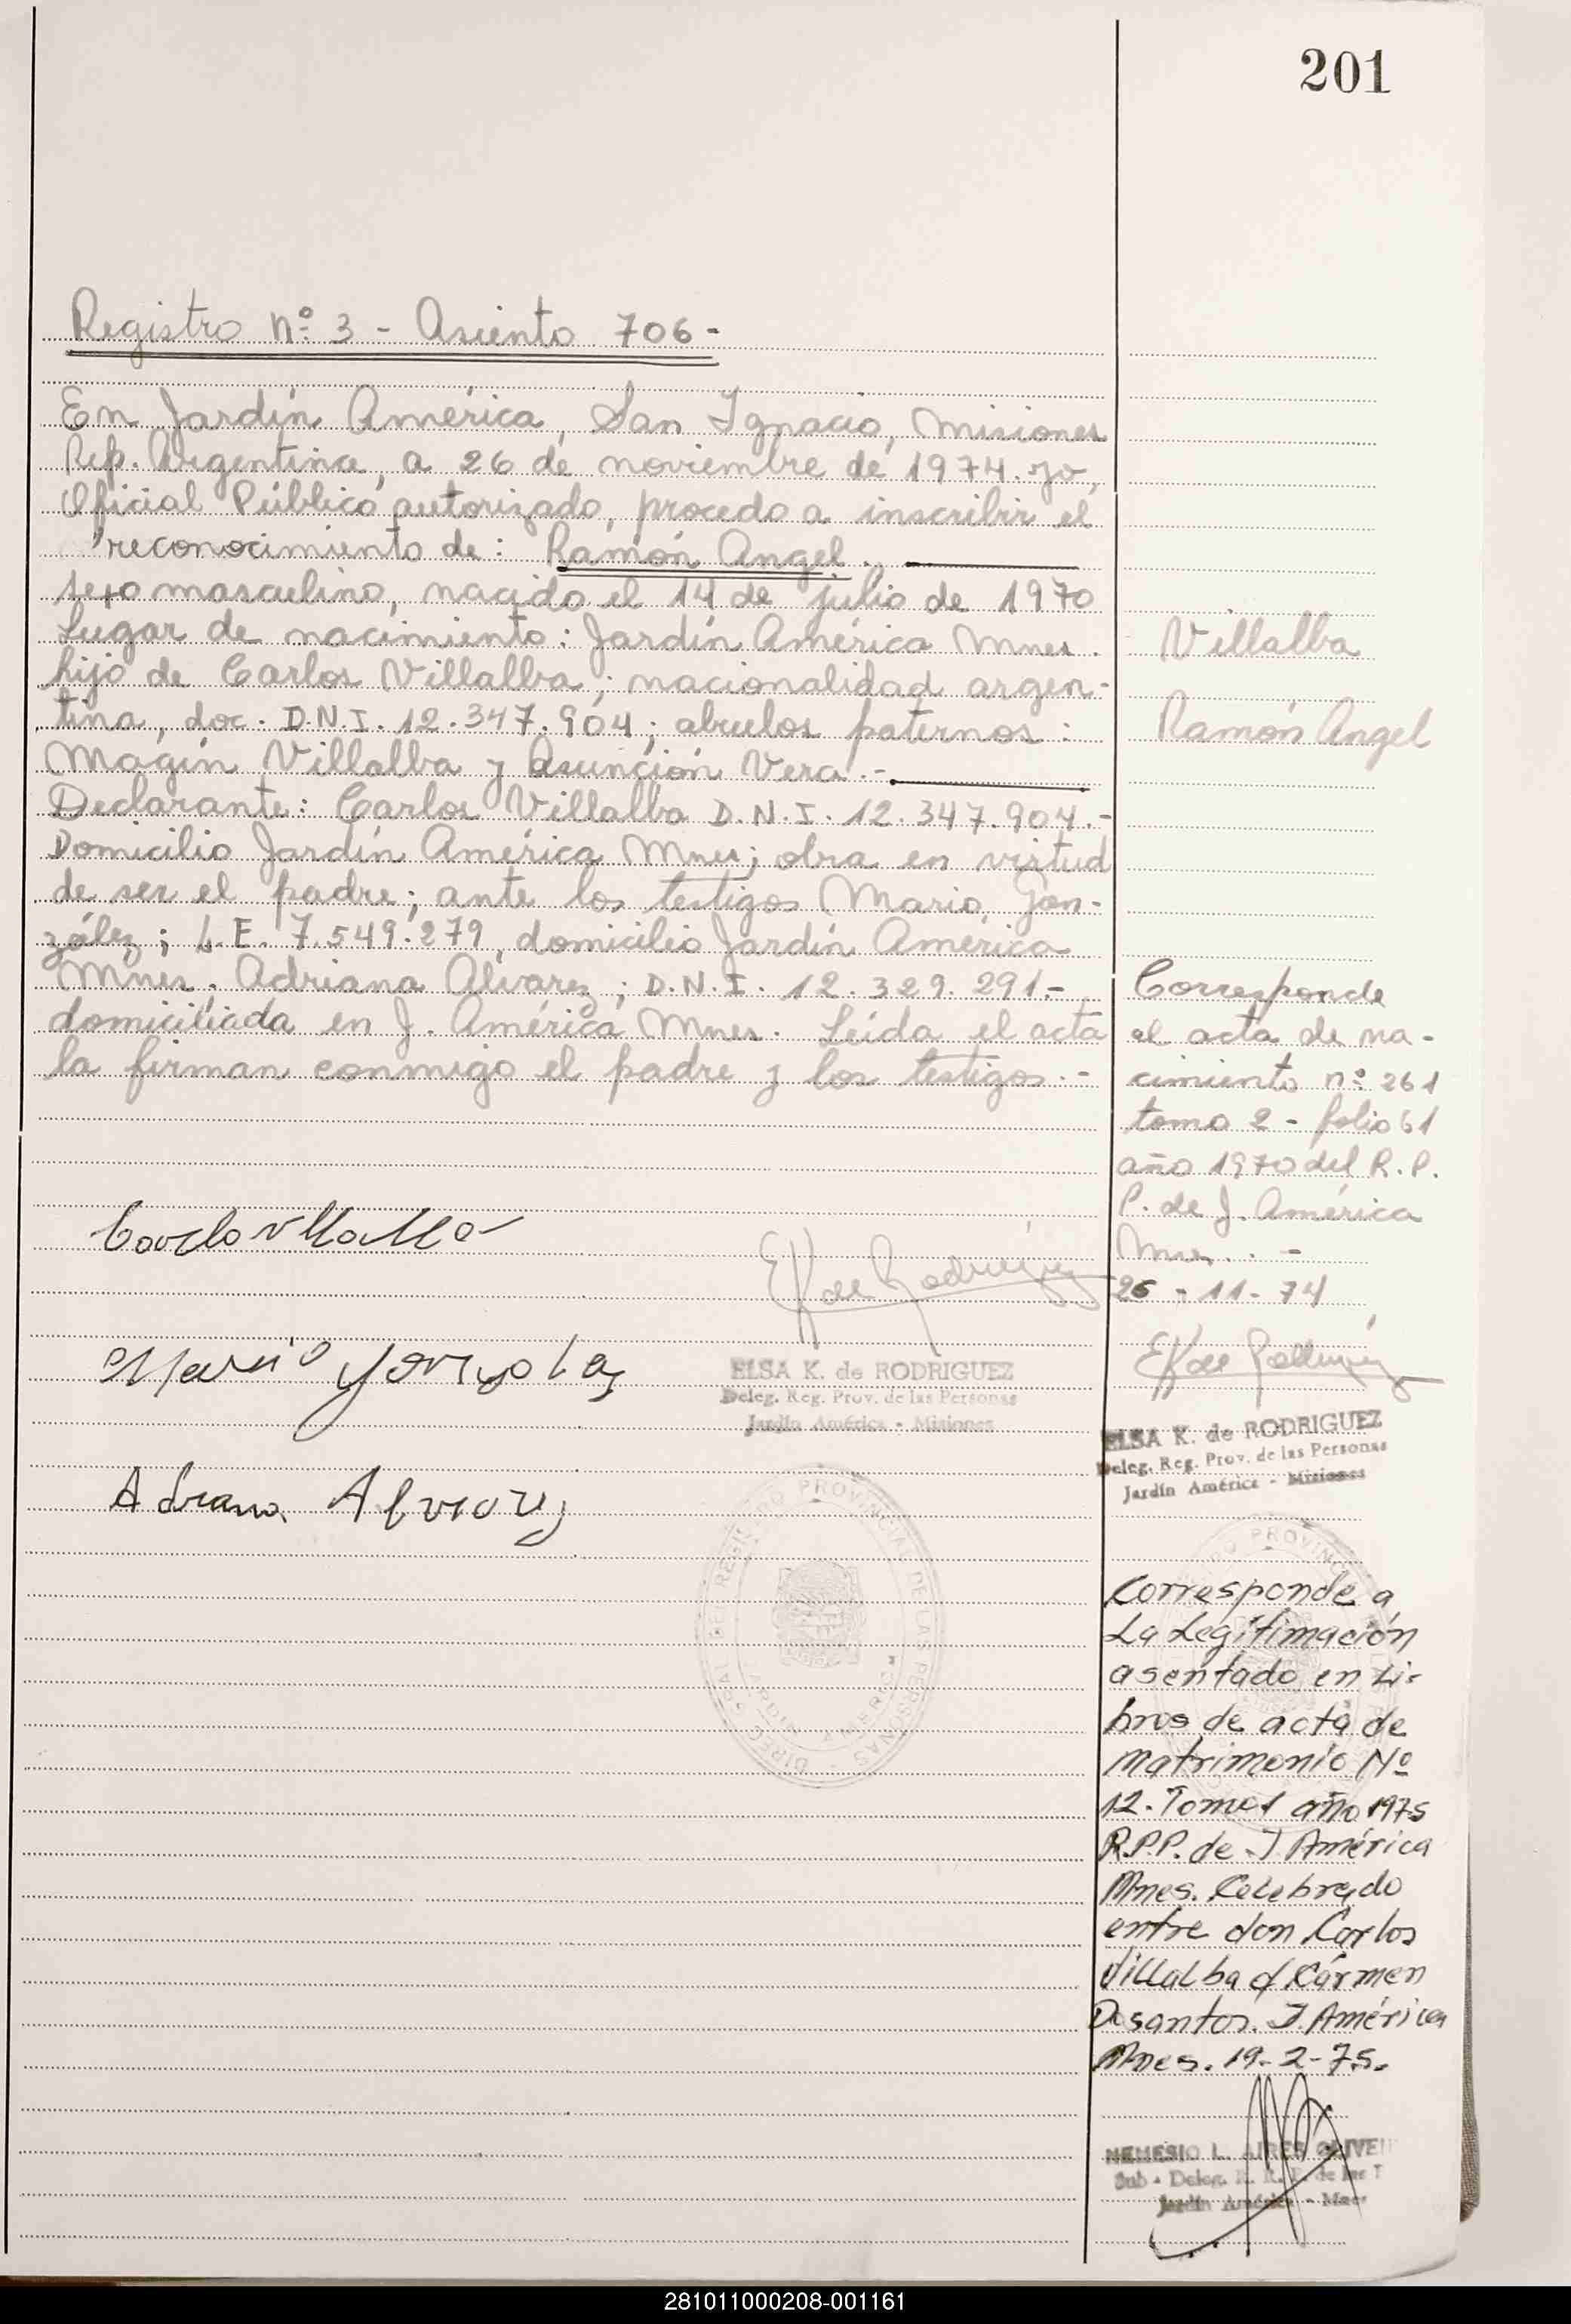 201
Registro nº 3 - Asiento 706 -
En Jardín América, San Ignacio, Misiones
Rep. Argentina, a 26 de noviembre de 1974. yo,
Oficial Público autorizado, procedo a inscribir el
reconocimiento de: Ramón Angel.
sexo masculino, nacido el 14 de julio de 1970
Lugar de nacimiento: Jardín América Mnes.
hijo de Carlos Villalba; nacionalidad argen-
tina, doc. D.N.I. 12.347.904; abuelos paternos:
Magín Villalba y Asunción Vera.-
Declarante: Carlos Villalba D.N.I. 12.347.904.-
Domicilio Jardín América Mnes; obra en virtud
de ser el padre; ante los testigos Mario Gon-
zález; L.E. 7.549.279, domicilio Jardín América
Mnes. Adriana Alvarez; D.N.I. 12.329.291.-
domiciliada en J. América Mnes. Leída el acta
la firman conmigo el padre y los testigos.-
Villalba
Ramón Angel
Corresponde
al acta de na-
cimiento nº 261
tomo 2 - folio 61
año 1970 del R.P.
P. de J. América
Mnes. -
26 - 11 - 74
EK de Rodriguez
ELSA K. de RODRIGUEZ
Deleg. Reg. Prov. de las Personas
Jardín América - Misiones
EK de Rodriguez
ELSA K. de RODRIGUEZ
Deleg. Reg. Prov. de las Personas
Jardín América - Misiones
Adriana Alvarez
PROVINCIAL DE LAS PERSONAS
JARDIN AMERICA
Corresponde a
La Legitimación
asentado en Li-
bros de acta de
matrimonio Nº
12. Tomo 1 año 1975
R.P.P. de J América
Mnes. Celebrado
entre don Carlos
Villalba c/ Cármen
Dosantos. J. América
Mnes. 19-2-75.
NEMESIO L. AIRES OLIVEI
Sub - Deleg. R. P. de las
Jardín América - Mnes